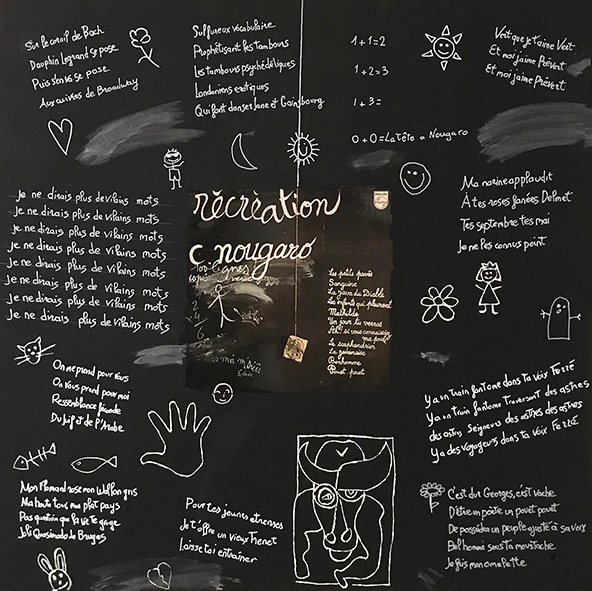 Sur le corail de Bach
Dauphin Legrand se pose
Puis s'en va se pose
Aux anives de Broadway
Sulfureux vocabulaire
Prophétisant les tambours
Les tambours psychédéliques
Londoniens erotiques
Qui font danser Jane et Gainsbourg
1 + 1 = 2
1 + 2 = 3
1 + 3 =
0 + 0 = La tête à Nougaro
Vert que je t'aime Vert
Et moi j'aime Prévert
Et moi j'aime Prévert
Je ne dirais plus de vilains mots
Je ne dirais plus de vilains mots
Je ne dirais plus de vilains mots
Je ne dirais plus de vilains mots
Je ne dirais plus de vilains mots
Je ne dirais plus de vilains mots
Je ne dirais plus de vilains mots
Je ne dirais plus de vilains mots
récréation
c. nougaro
100 lignes
2
4
6
Les petits pavés
Sanguine
La chanson du Diable
Les enfants qui pleurent
Mathilde
Un jour tu verras
Ah! si vous connaissiez
ma poule
Le scaphandrier
La javanaise
Bonhomme
Pouet pouet
Ma narine applaudit
A tes roses fanées Delmet
Tes septembre tes mai
Je ne les connus point
On me prend pour vous
On vous prend pour moi
Ressemblance
Du Juif et de l'Arabe
Mon Flamand rose mon Wallon gris
Ma haute tour mon plat pays
Pas question que ta vie te gage
Joli Quasimodo de Bruges
Pour tes jeunes
Je t'offre un vieux Trenet
Laisse toi entraîner
Y a un train fantome dans ta voix Ferré
Ya un train fantome traversant des astres
des astres Seigneurs des astres des astres
Y a des voyageurs dans ta voix Ferré
C'est dur Georges, c'est vache
D'être un poète un pouet pouet
De posséder un peuple ajusté à sa voix
Bel homme sous ta moustache
Je suis mon omelette